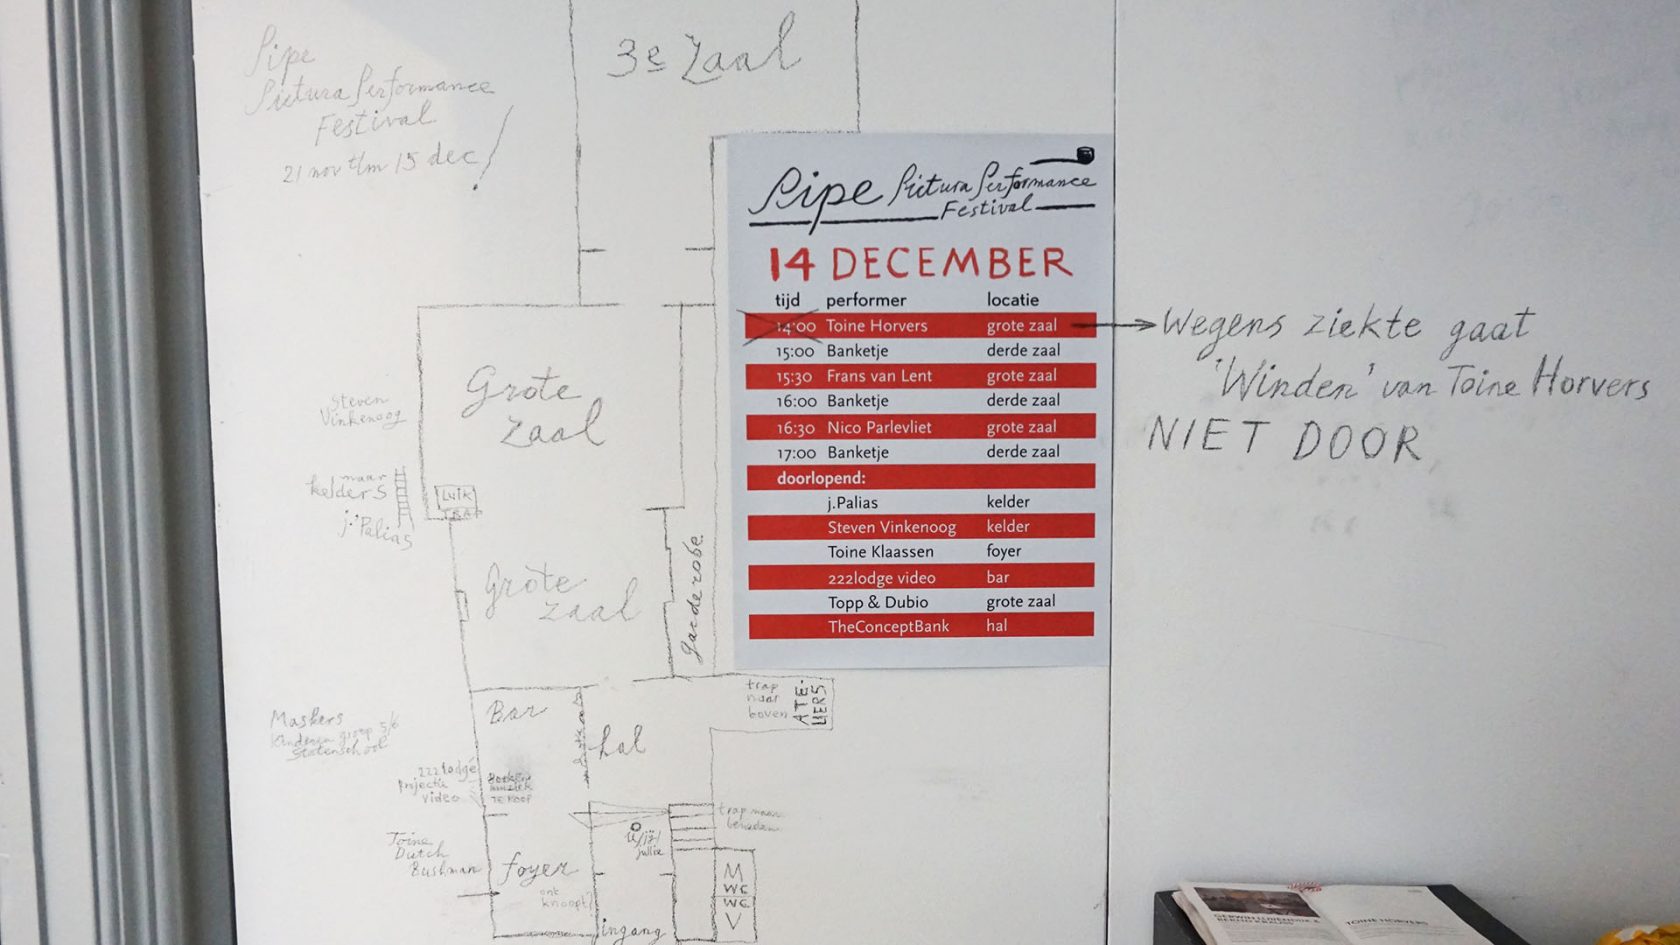 Pipe
Pictura Performance
Festival
21 nov t/m 15 dec!
3e Zaal
Grote
Zaal
Steven
Vinkenoog
naar
kelders
j. Palias
LUIK
TRAP
Grote
zaal
Garderobe
Bar
hal
trap
naar
boven
ATE-
LIERS
Maskers
Kinderen groep 5/6
Statenschool
222lodge
projectie
video
TE KOOP
Toine
Dutch
Bushman
foyer
trap naar
beneden
M
WC
WC
V
ingang
Pipe Pictura Performance
Festival
14 DECEMBER
tijd performer locatie
14:00 Toine Horvers grote zaal
15:00 Banketje derde zaal
15:30 Frans van Lent grote zaal
16:00 Banketje derde zaal
16:30 Nico Parlevliet grote zaal
17:00 Banketje derde zaal
doorlopend:
j.Palias kelder
Steven Vinkenoog kelder
Toine Klaassen foyer
222lodge video bar
Topp & Dubio grote zaal
TheConceptBank hal
Wegens ziekte gaat
'Winden' van Toine Horvers
NIET DOOR
TOINE HORVERS